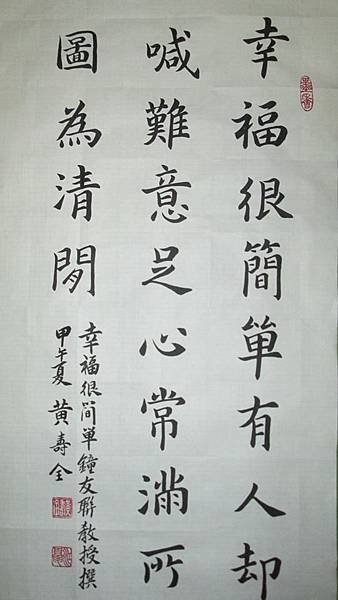 幸福很簡單有人却
喊難意足心常滿所
圖為清閒
幸福很简单鐘友聯教授撰
甲午夏 黃壽全